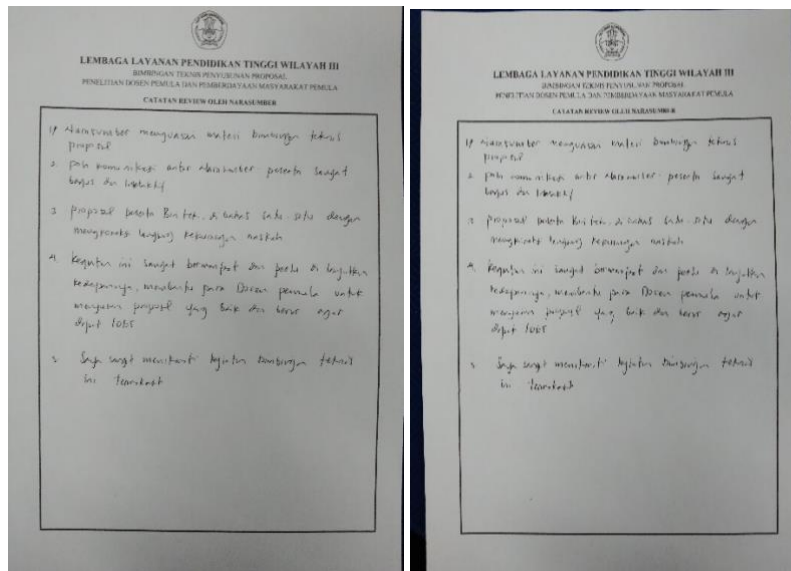 LEMBAGA LAYANAN PENDIDIKAN TINGGI WILAYAH III
BIMBINGAN TEKNIS PENYUSUNAN PROPOSAL
PENELITIAN DOSEN PEMULA DAN PEMBERDAYAAN MASYARAKAT PEMULA
CATATAN REVIEW OLEH NARASUMBER
1) Narasumber menguasai materi bimbingan teknis
proposal
2. pola komunikasi antar Narasumber peserta sangat
bagus dan
3. proposal peserta Bimtek di bahas satu-satu dengan
langsung kekurangan naskah
4. Kegiatan ini sangat bermanfaat dan perlu di lanjutkan
kedepannya, membantu para Dosen pemula untuk
menyusun proposal yang baik dan benar agar
dapat lolos
5. Saya sangat menikmati kegiatan bimbingan teknis
ini terimakasih
LEMBAGA LAYANAN PENDIDIKAN TINGGI WILAYAH III
BIMBINGAN TEKNIS PENYUSUNAN PROPOSAL
PENELITIAN DOSEN PEMULA DAN PEMBERDAYAAN MASYARAKAT PEMULA
CATATAN REVIEW OLEH NARASUMBER
1) Narasumber menguasai materi bimbingan teknis
proposal
2. pola komunikasi antar Narasumber peserta sangat
bagus dan
3. proposal peserta Bimtek di bahas satu-satu dengan
langsung kekurangan naskah
4. Kegiatan ini sangat bermanfaat dan perlu di lanjutkan
kedepannya, membantu para Dosen pemula untuk
menyusun proposal yang baik dan benar agar
dapat lolos
5. Saya sangat menikmati kegiatan bimbingan teknis
ini terimakasih